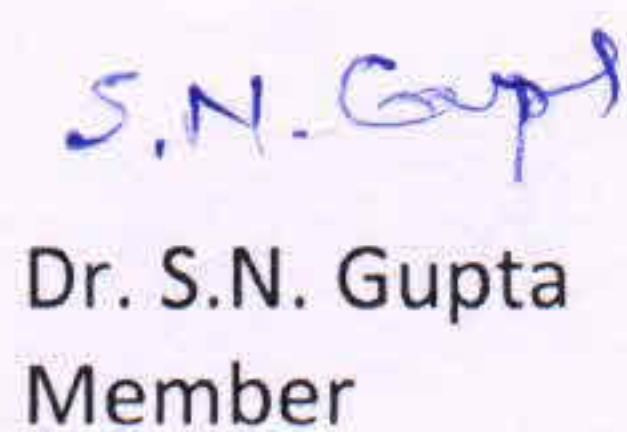 S.N. Gupt
Dr. S.N. Gupta
Member